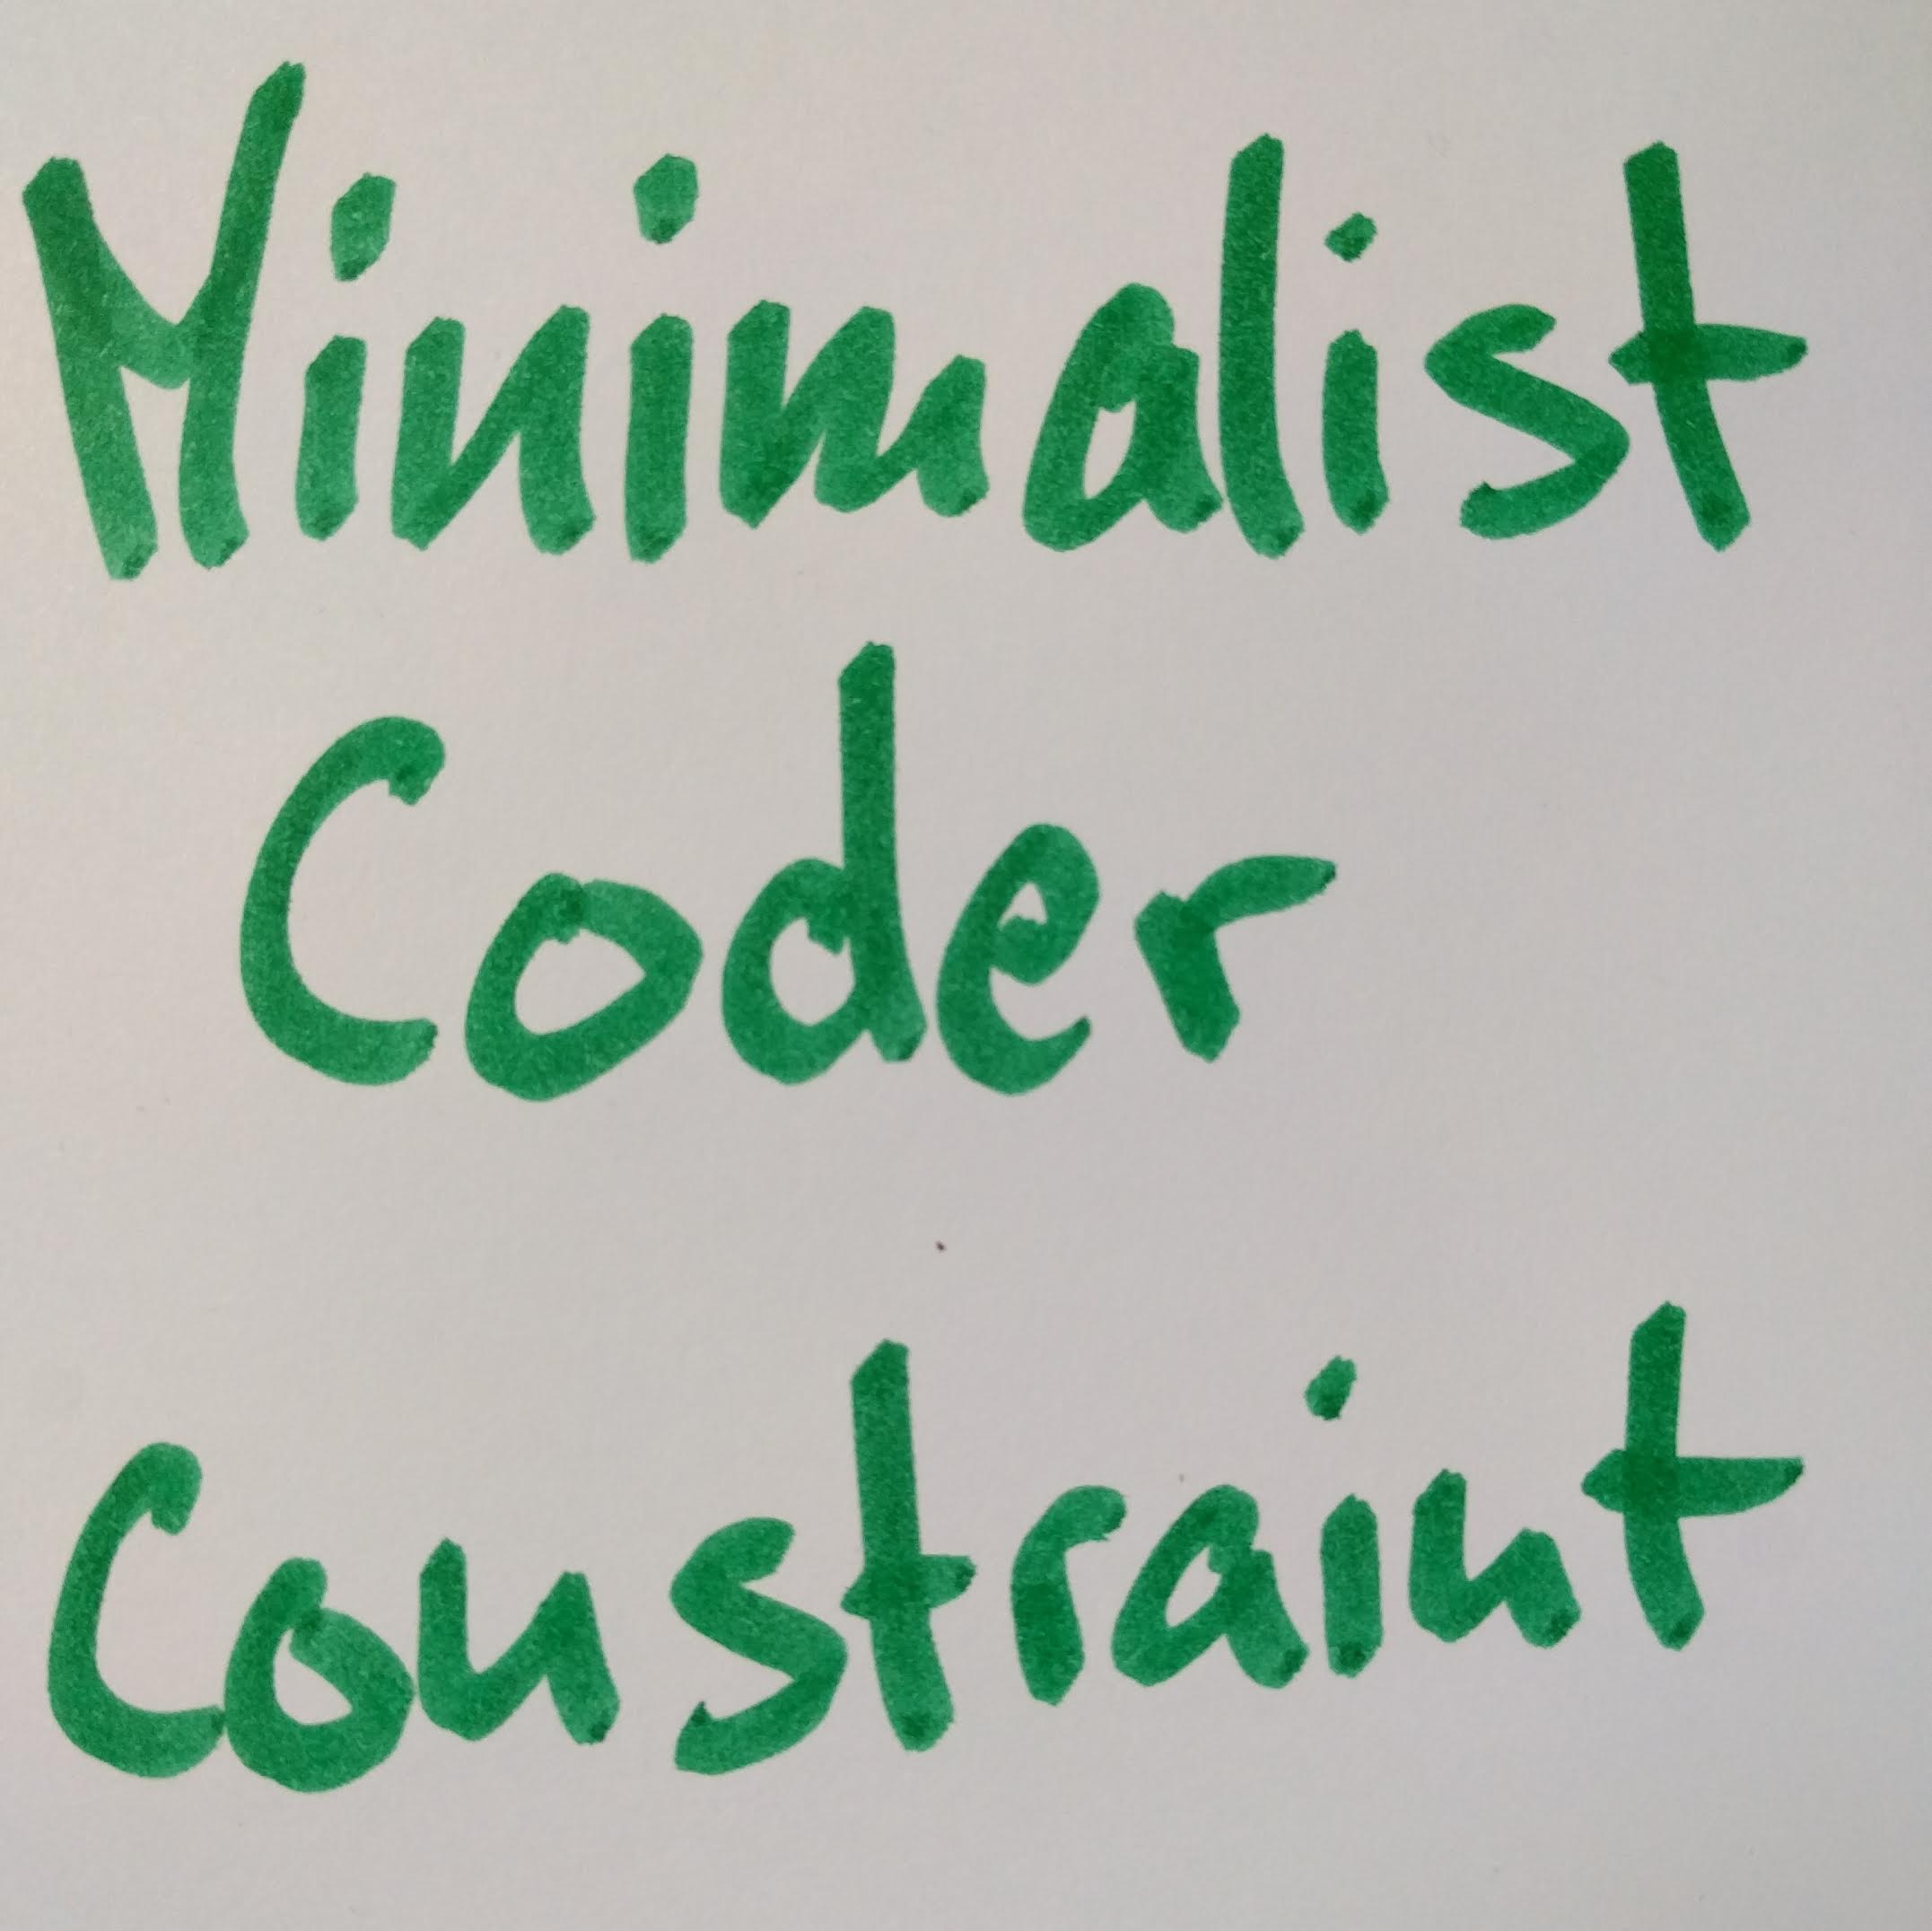 Minimalist
Coder
Constraint